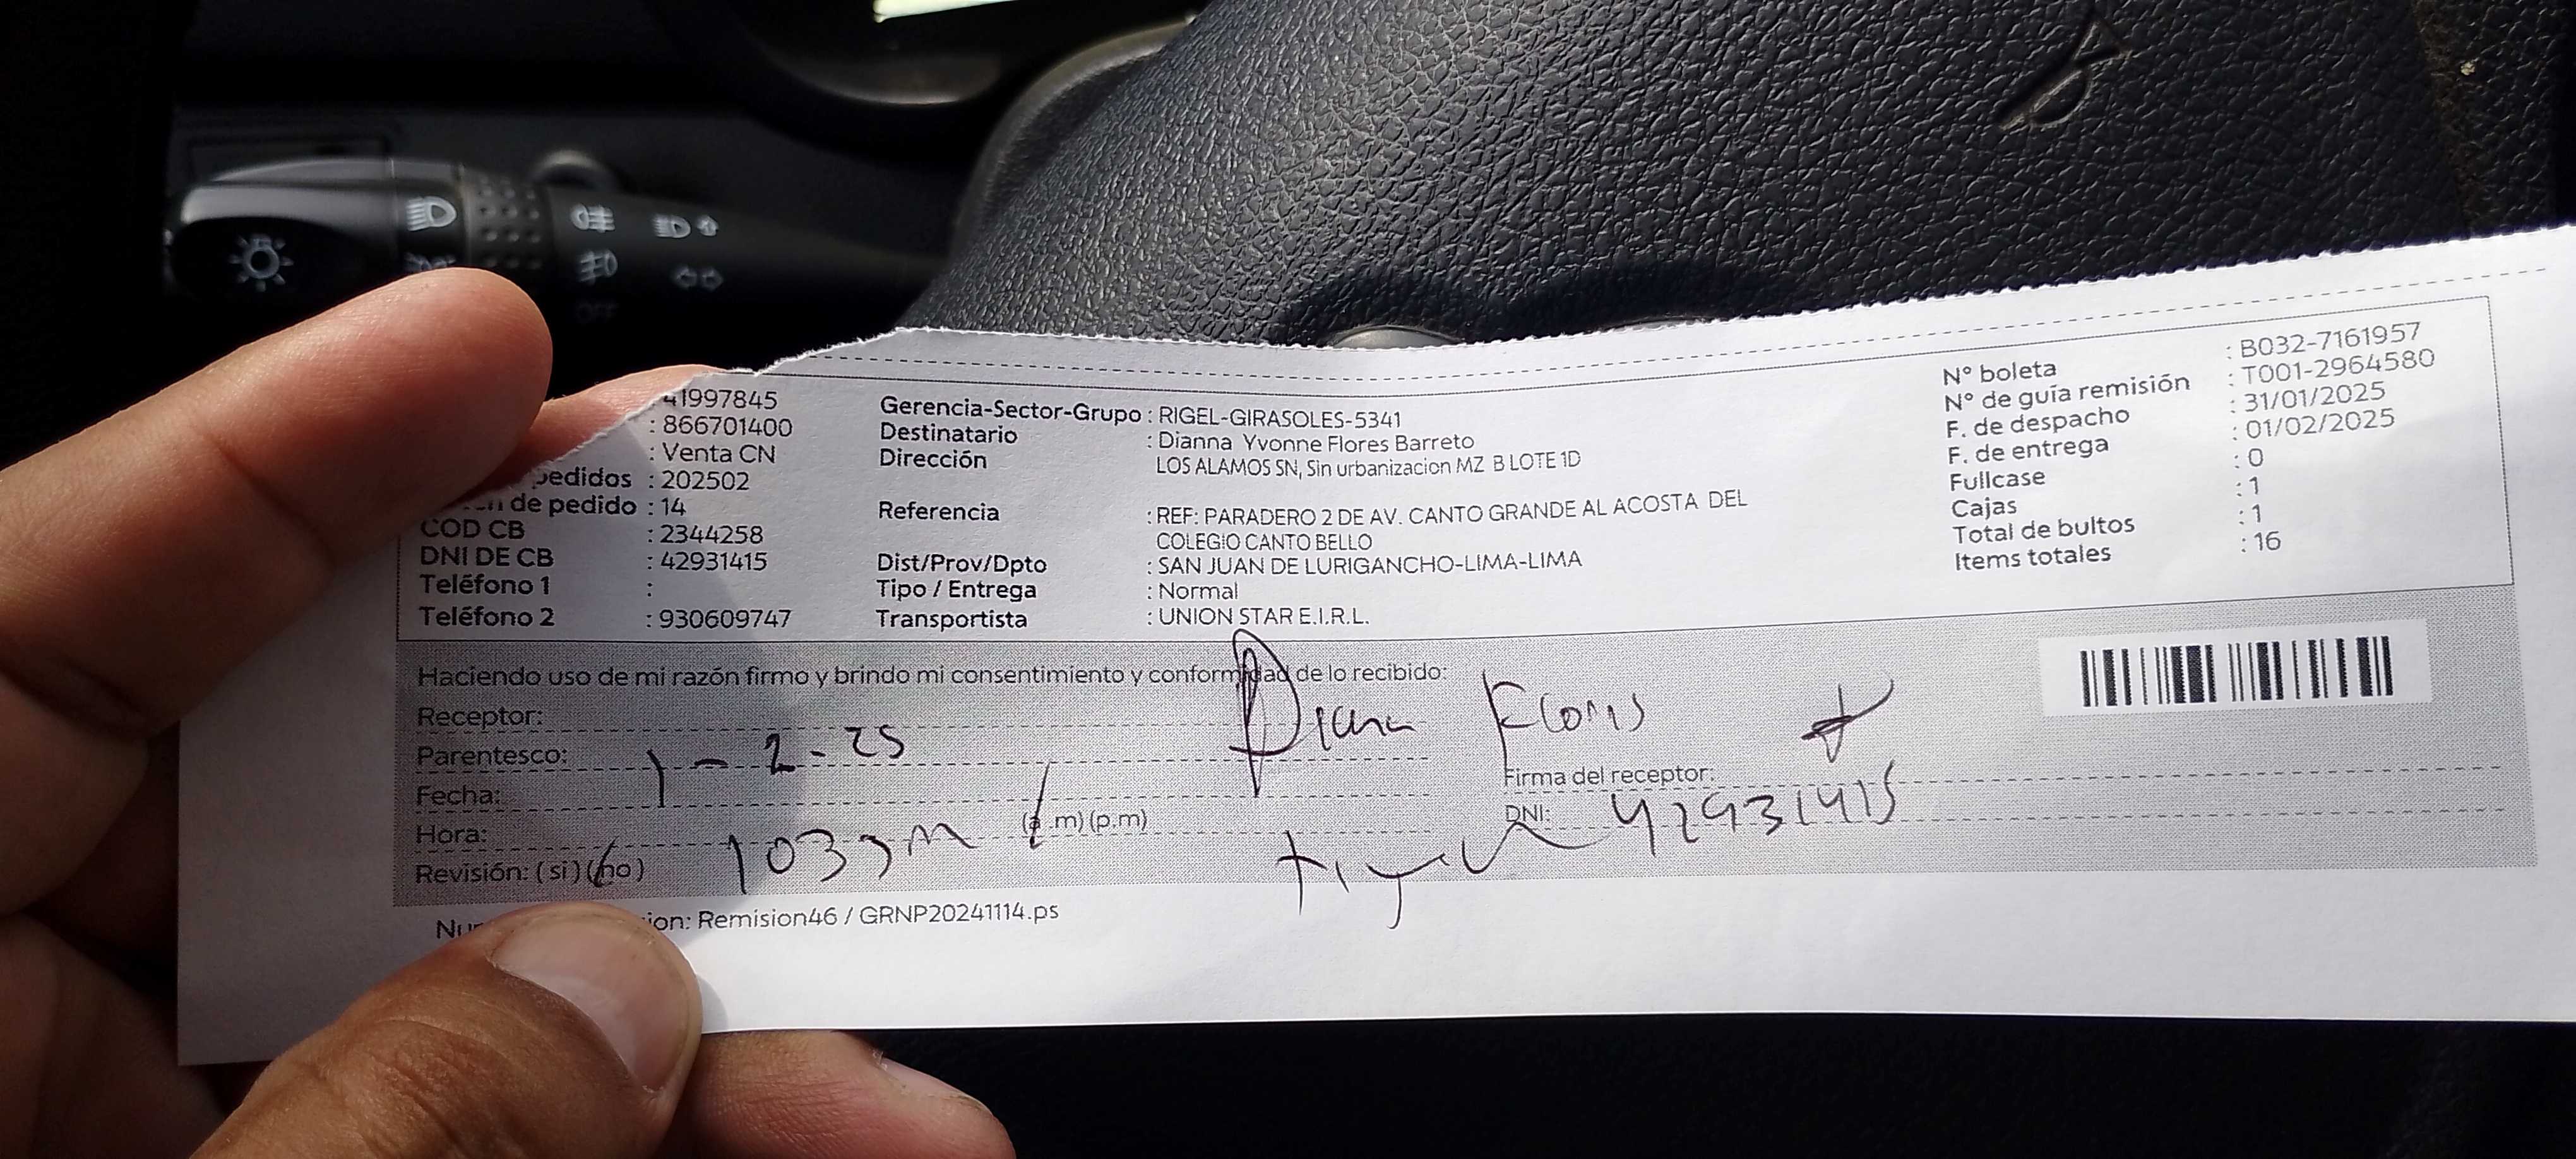 OFF
41997845
: 866701400
: Venta CN
pedidos : 202502
de pedido : 14
COD CB : 2344258
DNI DE CB : 42931415
Teléfono 1 :
Teléfono 2 : 930609747
Gerencia-Sector-Grupo : RIGEL-GIRASOLES-5341
Destinatario : Dianna Yvonne Flores Barreto
Dirección LOS ALAMOS SN, Sin urbanizacion MZ B LOTE 1D
Referencia : REF: PARADERO 2 DE AV. CANTO GRANDE AL ACOSTA DEL
COLEGIO CANTO BELLO
Dist/Prov/Dpto : SAN JUAN DE LURIGANCHO-LIMA-LIMA
Tipo / Entrega : Normal
Transportista : UNION STAR E.I.R.L.
N° boleta : B032-7161957
N° de guía remisión : T001-2964580
F. de despacho : 31/01/2025
F. de entrega : 01/02/2025
Fullcase : 0
Cajas : 1
Total de bultos : 1
Items totales : 16
Haciendo uso de mi razón firmo y brindo mi consentimiento y conformidad de lo recibido:
Receptor: Diana Flores
Parentesco:
Fecha: 1-2-25
Hora: (a.m) (p.m)
Revisión: (si) (no)
Firma del receptor:
DNI: 42931415
ion: Remision46 / GRNP20241114.ps